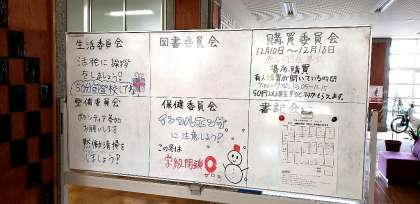 生活委員会
活発に挨拶
をしましょう!
5分前登校してね
図書委員会
購買委員会
12月10日〜12月18日
場所 購買
整備委員会
ボランティア参加
お願いします
黙働清掃を
しましょう!
保健委員会
インフルエンザ
に注意しよう?
この冬は
学級閉鎖
ゼロ
書記会